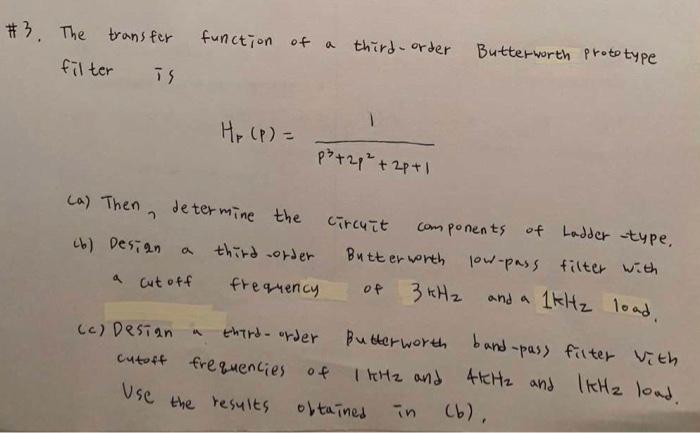 #3. The transfer function of a third-order Butterworth prototype
filter is
Hp (p) = 1 / p³+2p²+2p+1
(a) Then, determine the circuit components of Ladder-type.
(b) Design a third-order Butterworth low-pass filter with
a cutoff frequency of 3kHz and a 1kHz load.
(c) Design a third-order Butterworth band-pass filter with
cutoff frequencies of 1kHz and 4kHz and 1kHz load.
Use the results obtained in (b).